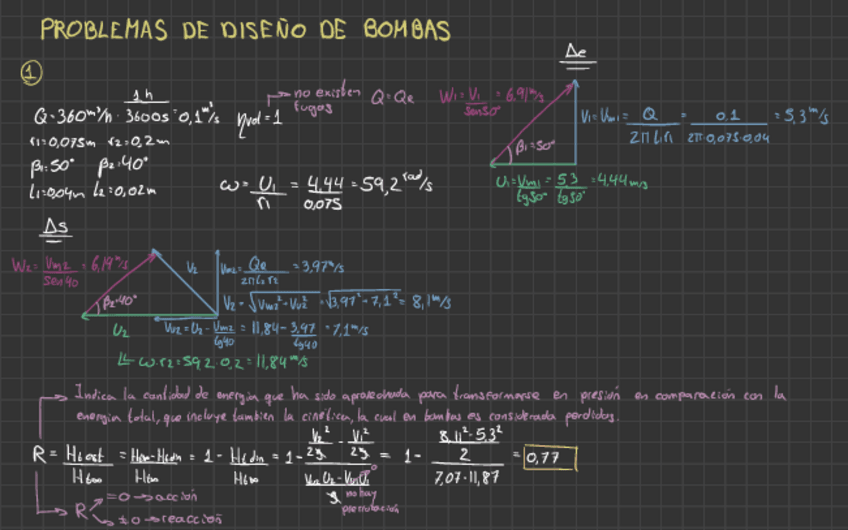 PROBLEMAS DE DISEÑO DE BOMBAS
1
Q=360 m³/h · 1h/3600s = 0,1 m³/s
ηvol=1
no existen fugas
Q=Qe
r1=0,075m r2=0,2m
β1=50° β2=40°
L1=0,04m L2=0,02m
ω = U1/r1 = 4,44/0,075 = 59,2 rad/s
Δe
W1 = V1/sen50° = 6,91 m/s
β1=50°
V1=Vm1 = Q/2π L1 r1 = 0,1/2π·0,075·0,04 = 5,3 m/s
U1 = Vm1/tg50° = 5,3/tg50° = 4,44 m/s
Δs
W2 = Vm2/sen40 = 6,19 m/s
β2=40°
V2
Vm2 = Qe/2π L2 r2 = 3,97 m/s
V2 = √Vm2²+Vu2² = √3,97²+7,1² = 8,1 m/s
U2
Vu2 = U2 - Vm2/tg40 = 11,84 - 3,97/tg40 = 7,1 m/s
ω·r2 = 59,2·0,2 = 11,84 m/s
Indica la cantidad de energía que ha sido aprovechada para transformarse en presión en comparación con la
energía total, que incluye tambien la cinética, la cual en bombas es considerada perdidas.
R = Hbest/Hb∞ = Hb∞-Hbdin/Hb∞ = 1 - Hbdin/Hb∞ = 1 - (V2²/2g - V1²/2g)/(Vu2 U2 - Vu1 U1/g) = 1 - (8,11²-5,3²/2)/(7,07·11,87) = 0,77
no hay
prerrotación
R =0 → acción
≠0 → reacción